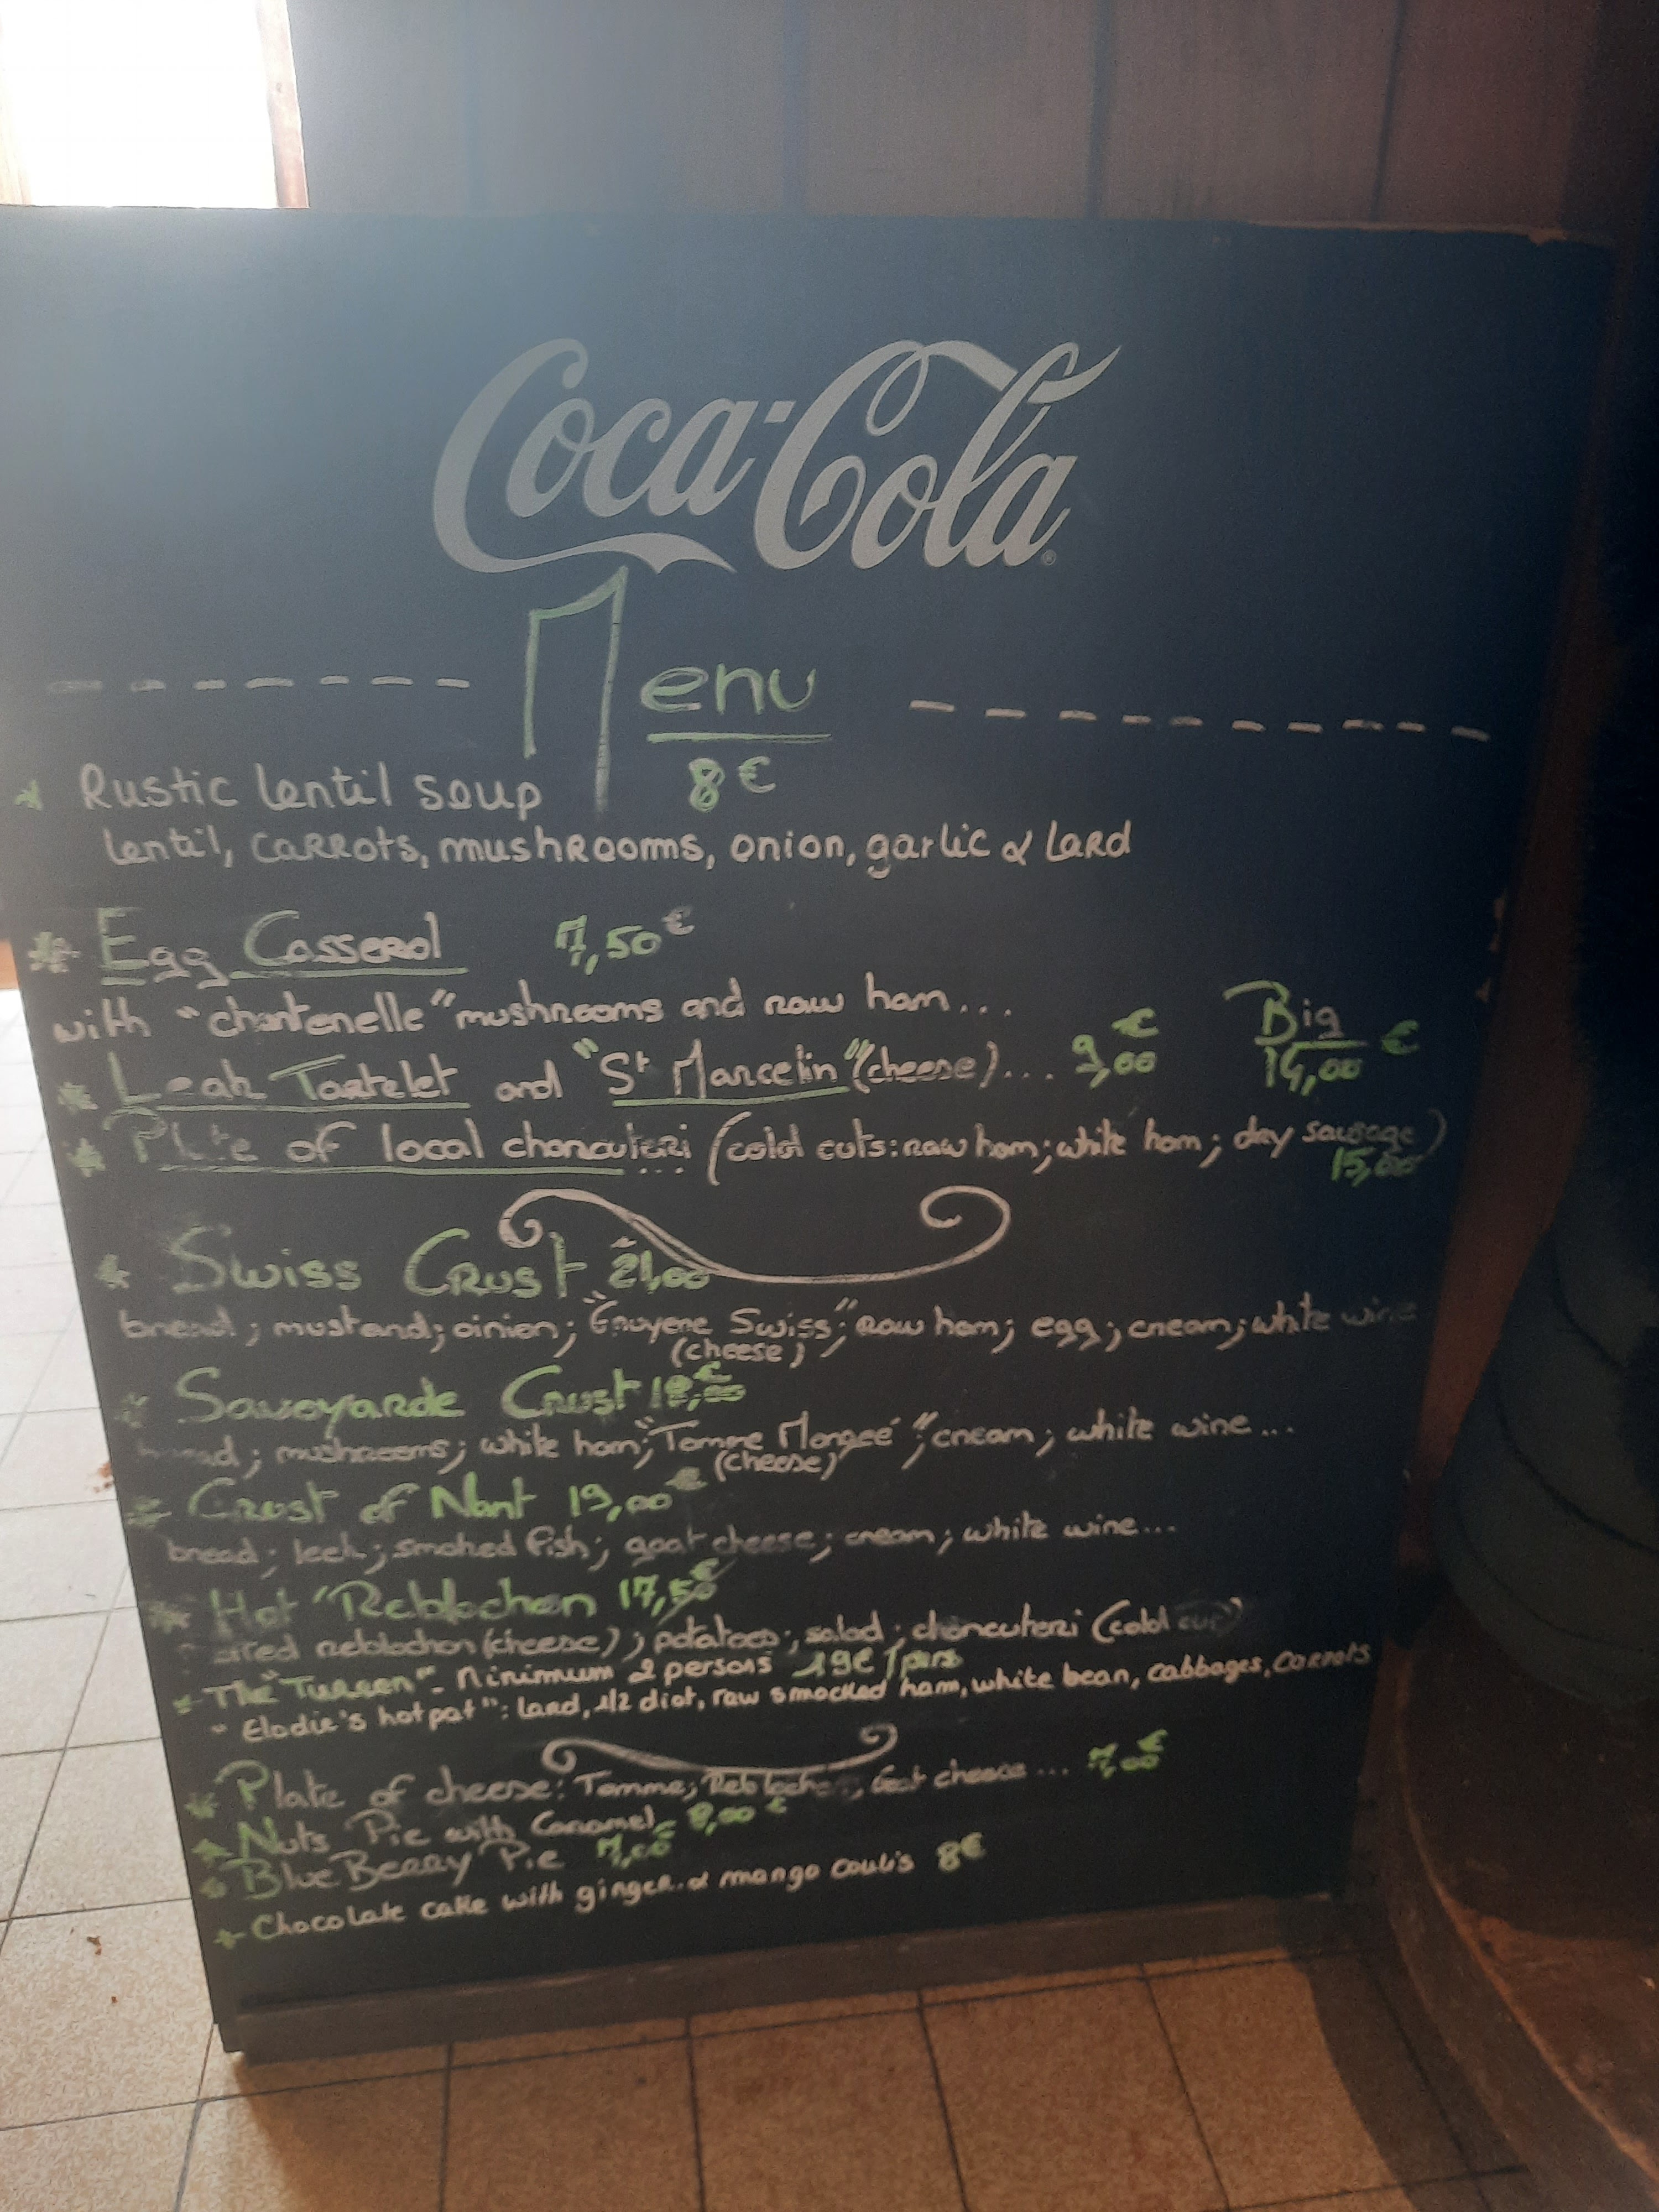 Coca-Cola®
Menu
* Rustic lentil soup 8€
lentil, carrots, mushrooms, onion, garlic & lard
* Egg Casserol 7,50€
with "chantenelle" mushrooms and raw ham...
* Leak Tartelet and "St Marcelin" (cheese)... 9,00€ Big 14,00€
* Plate of local charcuteri (cold cuts: raw ham; white ham; dry sausage)
15,00
* Swiss Crust 21,00
bread; mustard; oinion; "Gruyere Swiss"; raw ham; egg; cream; white wine
(cheese)
* Savoyarde Crust 18,00€
bread; mushrooms; white ham; "Tomme Mongée"; cream; white wine...
(cheese)
* Crust of Nant 19,00€
bread; leek; smoked fish; goat cheese; cream; white wine...
* Hot "Reblochon 17,50€
reblochon (cheese); potatoes; salad; charcuteri (cold cup)
* The "Tureen" - Minimum 2 persons 19€/pers
"Elodie's hotpat": lard, 1/2 diot, raw smocked ham, white bean, cabbages, carrots
* Plate of cheese: Tomme; Reblochon, Goat cheese... 7,00€
* Nuts Pie with Caramel 8,00€
* BlueBerry Pie 7,00€
* Chocolate cake with ginger & mango coulis 8€